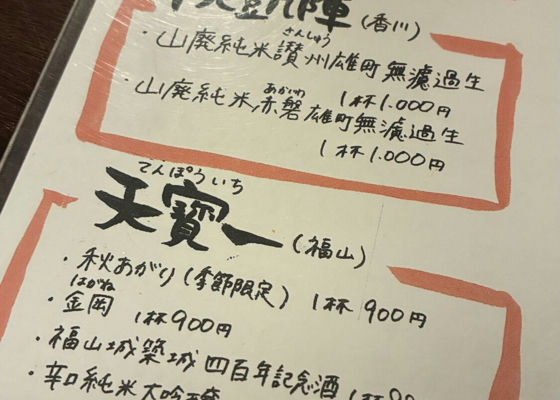 凱陣(香川)
さんしゅう
・山廃純米讃州雄町無濾過生
1杯1.000円
あかいわ
・山廃純米赤磐雄町無濾過生
1杯1.000円
てんぽういち
天寶一(福山)
・秋あがり(季節限定) 1杯 900円
はがね
・金岡 1杯900円
・福山城築城四百年記念酒 1杯
・辛口純米大吟醸